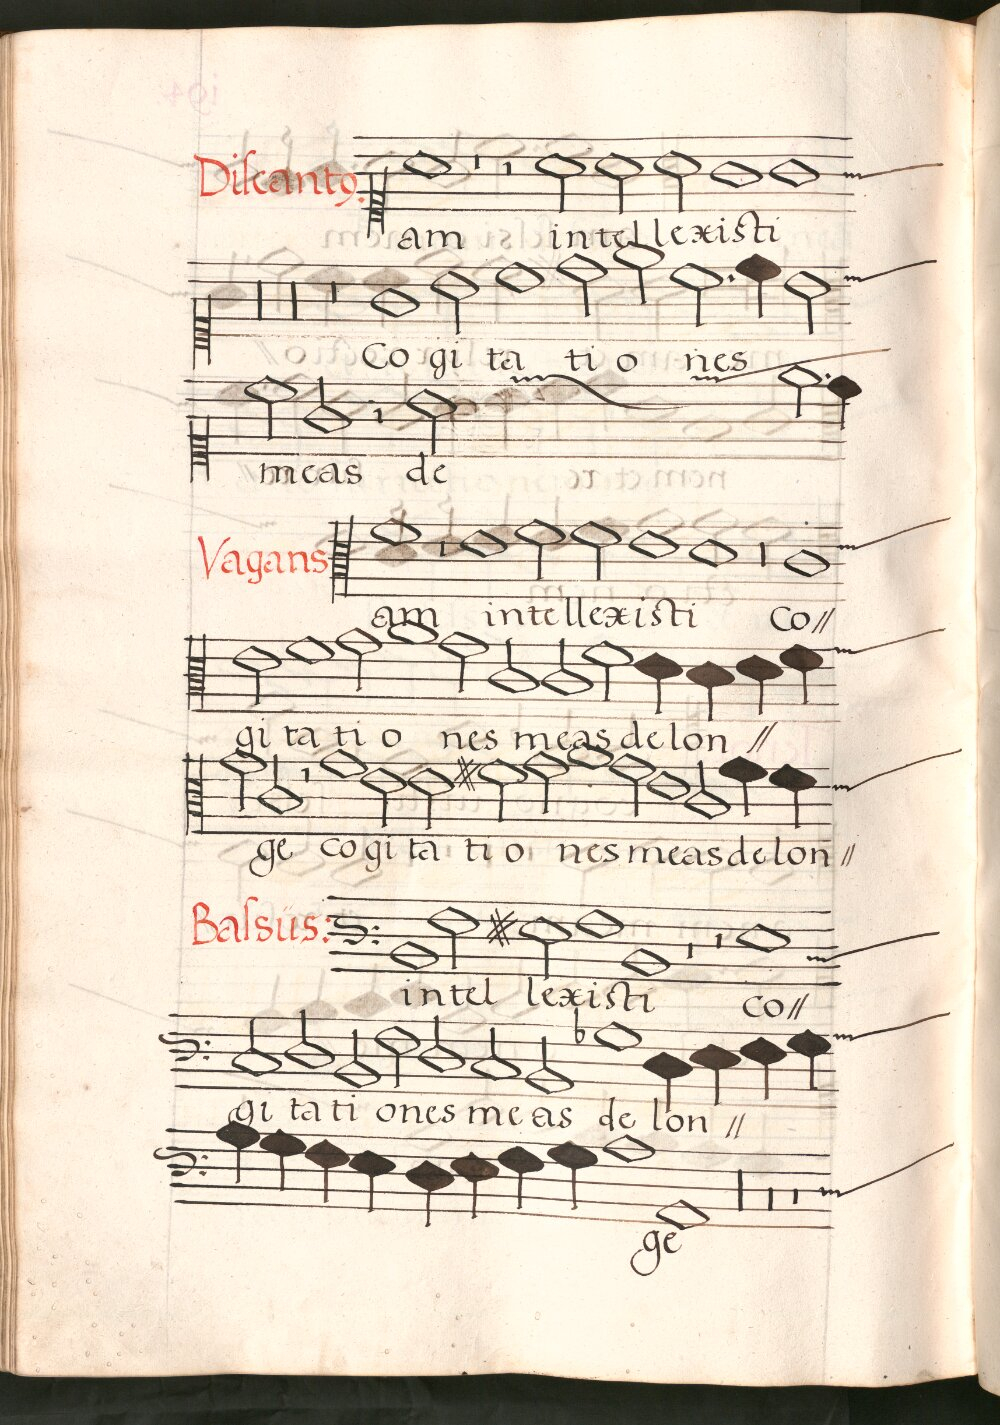 Discantꝰ:
am intellexisti
Co gi ta ti o nes
meas de
Vagans
am intellexisti Co//
gi ta ti o nes meas de lon //
ge co gi ta ti o nes meas de lon //
Bassus:
intel lexisti co//
gi ta ti ones me as de lon //
ge